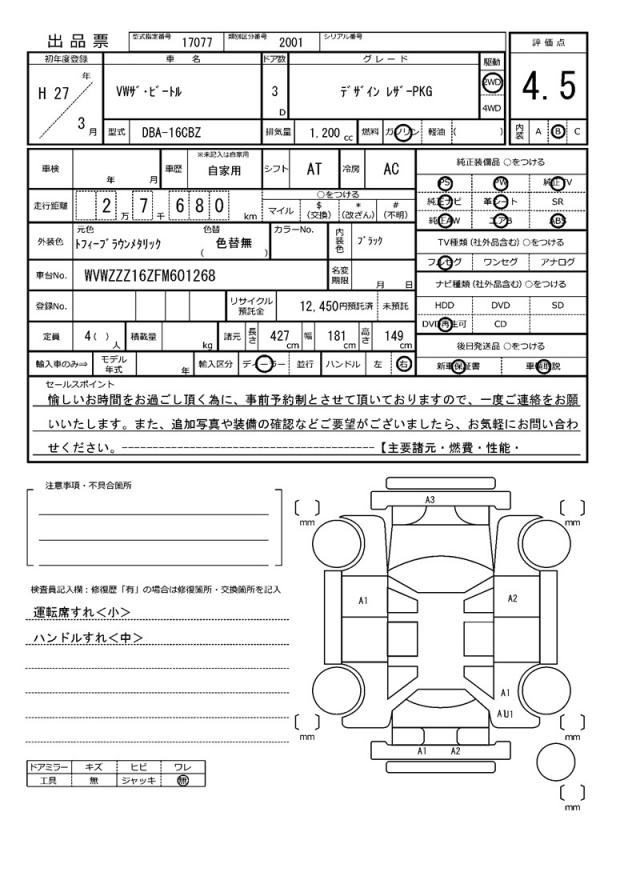 出品票
型式指定番号 17077 類別区分番号 2001 シリアル番号
初年度登録 車名 ドア数 グレード 駆動 評価点
H 27 年 3 月
VWザ・ビートル 3 D デザイン レザーPKG 2WD 4WD
4.5
型式 DBA-16CBZ 排気量 1.200 cc 燃料 ガソリン 軽油 ( ) 内装 A B C
車検 年 月 車歴 ※未記入は自家用 自家用 シフト AT 冷房 AC
純正装備品 ○をつける
PS PW 純正TV
走行距離 2 万 7 千 6 8 0 km
○をつける
マイル $ (交換) * (改ざん) # (不明)
純正ナビ 革シート SR
純正AW エアB ABS
外装色 元色 トフィーブラウンメタリック 色替 ( 色替無 ) カラーNo. 内装色 ブラック
TV種類 (社外品含む) ○をつける
フルセグ ワンセグ アナログ
車台No. WVWZZZ16ZFM601268 名変期限 月 日
ナビ種類 (社外品含む) ○をつける
登録No. リサイクル預託金 12,450円預託済 未預託
HDD DVD SD
DVD再生可 CD
定員 4( )人 積載量 kg 諸元 長さ 427 cm 幅 181 cm 高さ 149 cm
後日発送品 ○をつける
輸入車のみ⇒ モデル年式 年 輸入区分 ディーラー 並行 ハンドル 左 右
新車保証書 車輌取説
セールスポイント
愉しいお時間をお過ごし頂く為に、事前予約制とさせて頂いておりますので、一度ご連絡をお願
いいたします。また、追加写真や装備の確認などご要望がございましたら、お気軽にお問い合わ
せください。--------------------------------------【主要諸元・燃費・性能・
注意事項・不具合箇所
検査員記入欄：修復歴「有」の場合は修復箇所・交換箇所を記入
運転席すれ＜小＞
ハンドルすれ＜中＞
ドアミラー キズ ヒビ ワレ
工具 無 ジャッキ 無
A3
mm mm
A1 A2
A1
A1U1
mm mm
A1 A2
mm